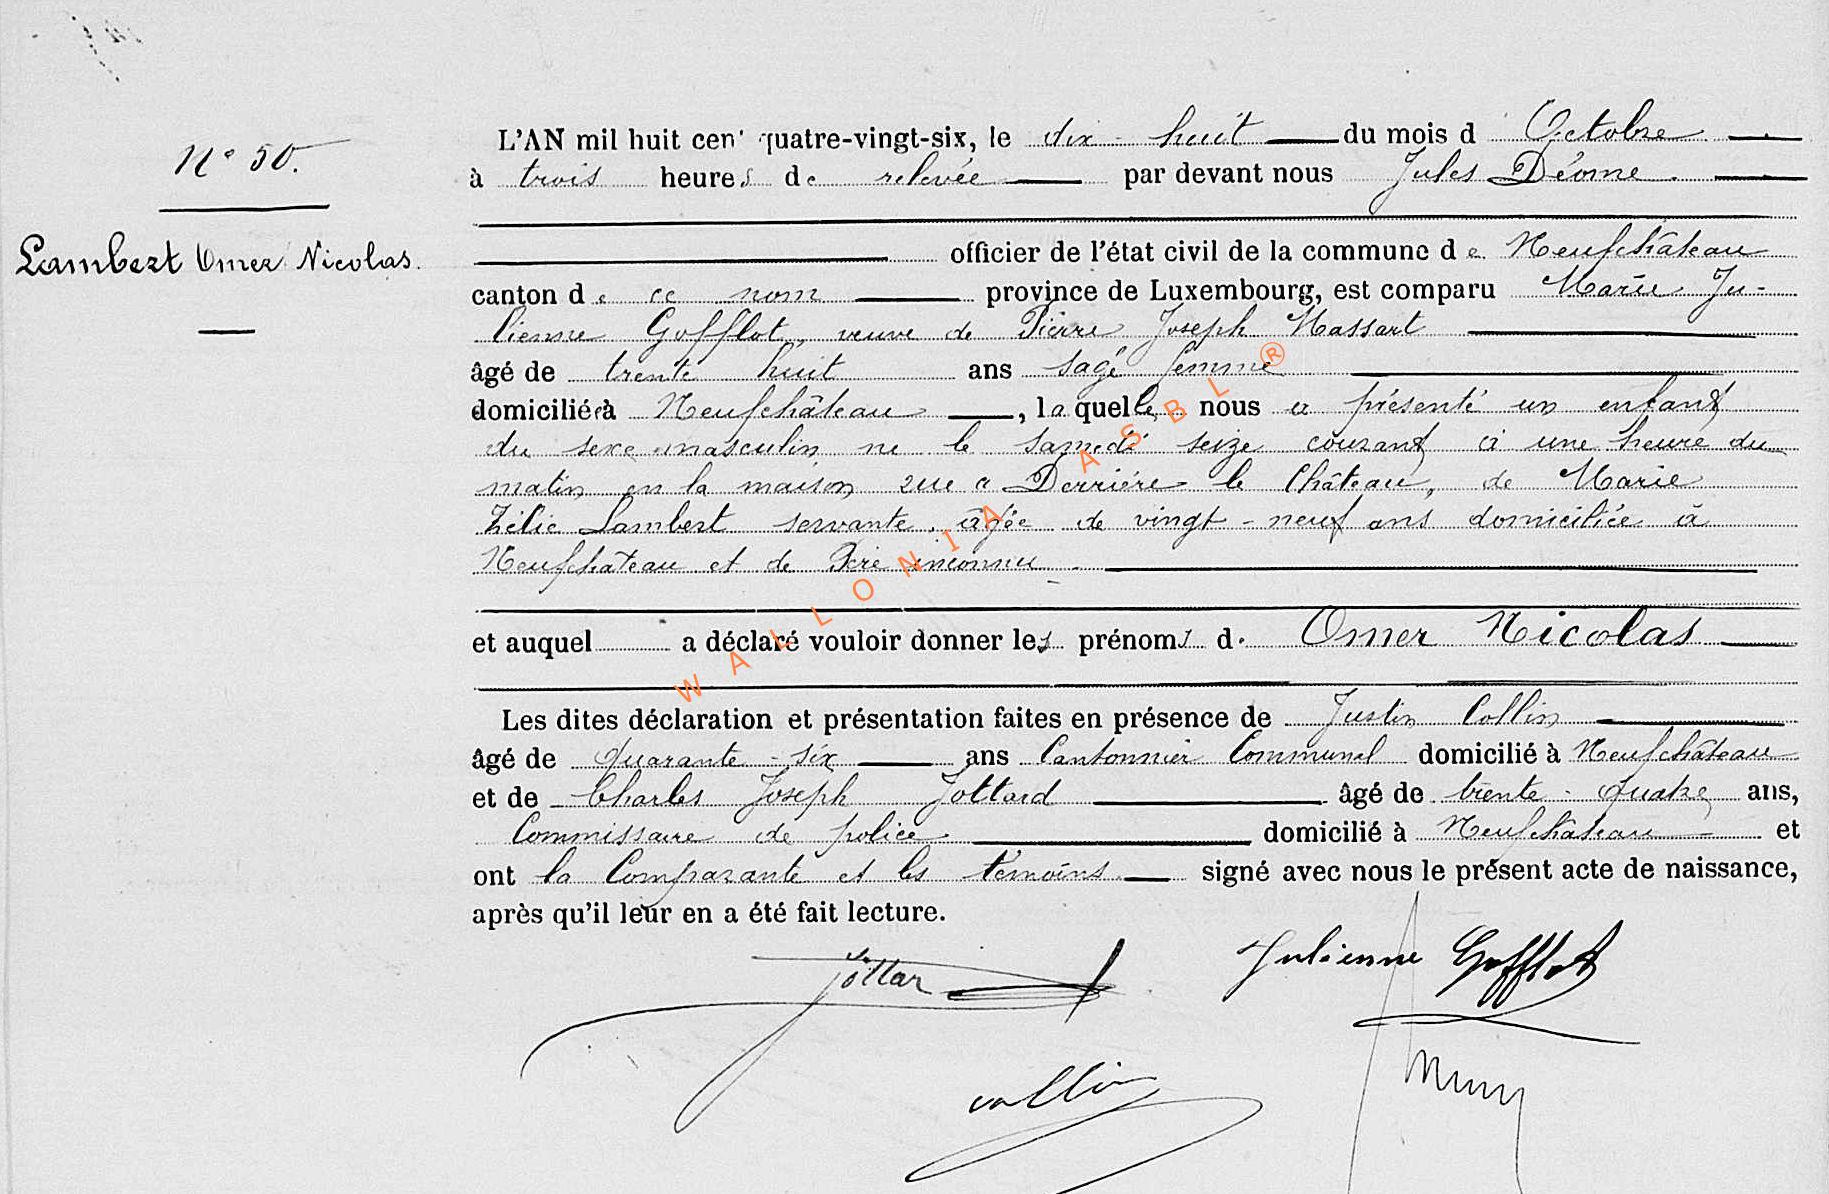 N° 50.
Lambert Omer Nicolas.
L'AN mil huit cen' quatre-vingt-six, le dix-huit du mois d'Octobre
à trois heures de relevée par devant nous Jules Déome
officier de l'état civil de la commune de Neufchâteau
canton de ce nom province de Luxembourg, est comparu Marie Ju-
lienne Gofflot, veuve de Pierre Joseph Massart
âgé de trente huit ans sage femme
domiciliée à Neufchâteau, laquelle nous a présenté un enfant
du sexe masculin né le samedi seize courant à une heure du
matin en la maison rue Derrière le Château, de Marie
Zélie Lambert servante, âgée de vingt-neuf ans domiciliée à
Neufchâteau et de Père inconnu
et auquel a déclaré vouloir donner les prénoms d. Omer Nicolas
Les dites déclaration et présentation faites en présence de Justin Collin
âgé de Quarante-six ans Cantonnier Communal domicilié à Neufchâteau
et de Charles Joseph Jottard âgé de trente-Quatre ans,
Commissaire de police domicilié à Neufchâteau et
ont la Comparante et les témoins signé avec nous le présent acte de naissance,
après qu'il leur en a été fait lecture.
Jottar
Julienne Gofflot
Collin
WALLONIA ASBL®